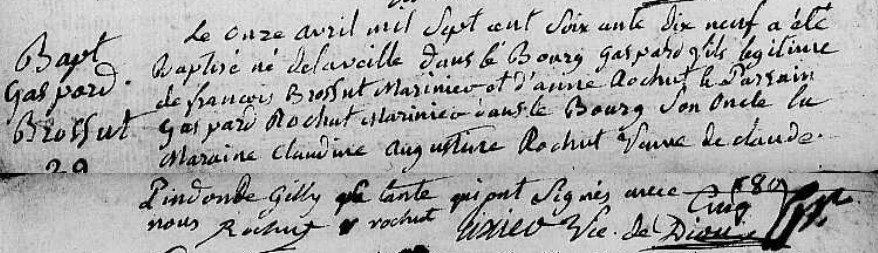 Le onze avril mil sept cent soixante dix neuf a été
Bapt
Baptisé né de la veille dans le Bourg gaspard fils legitime
Gaspard.
de françois Brossut Marinier et d'anne Rochut le Parrain
Brossut
gaspard Rochut Marinier dans le Bourg son oncle la
29
Maraine Claudine augustine Rochut Veuve de claude
Gilly tante qui ont signés avec
nous Rochut rochut Vic. de Diou